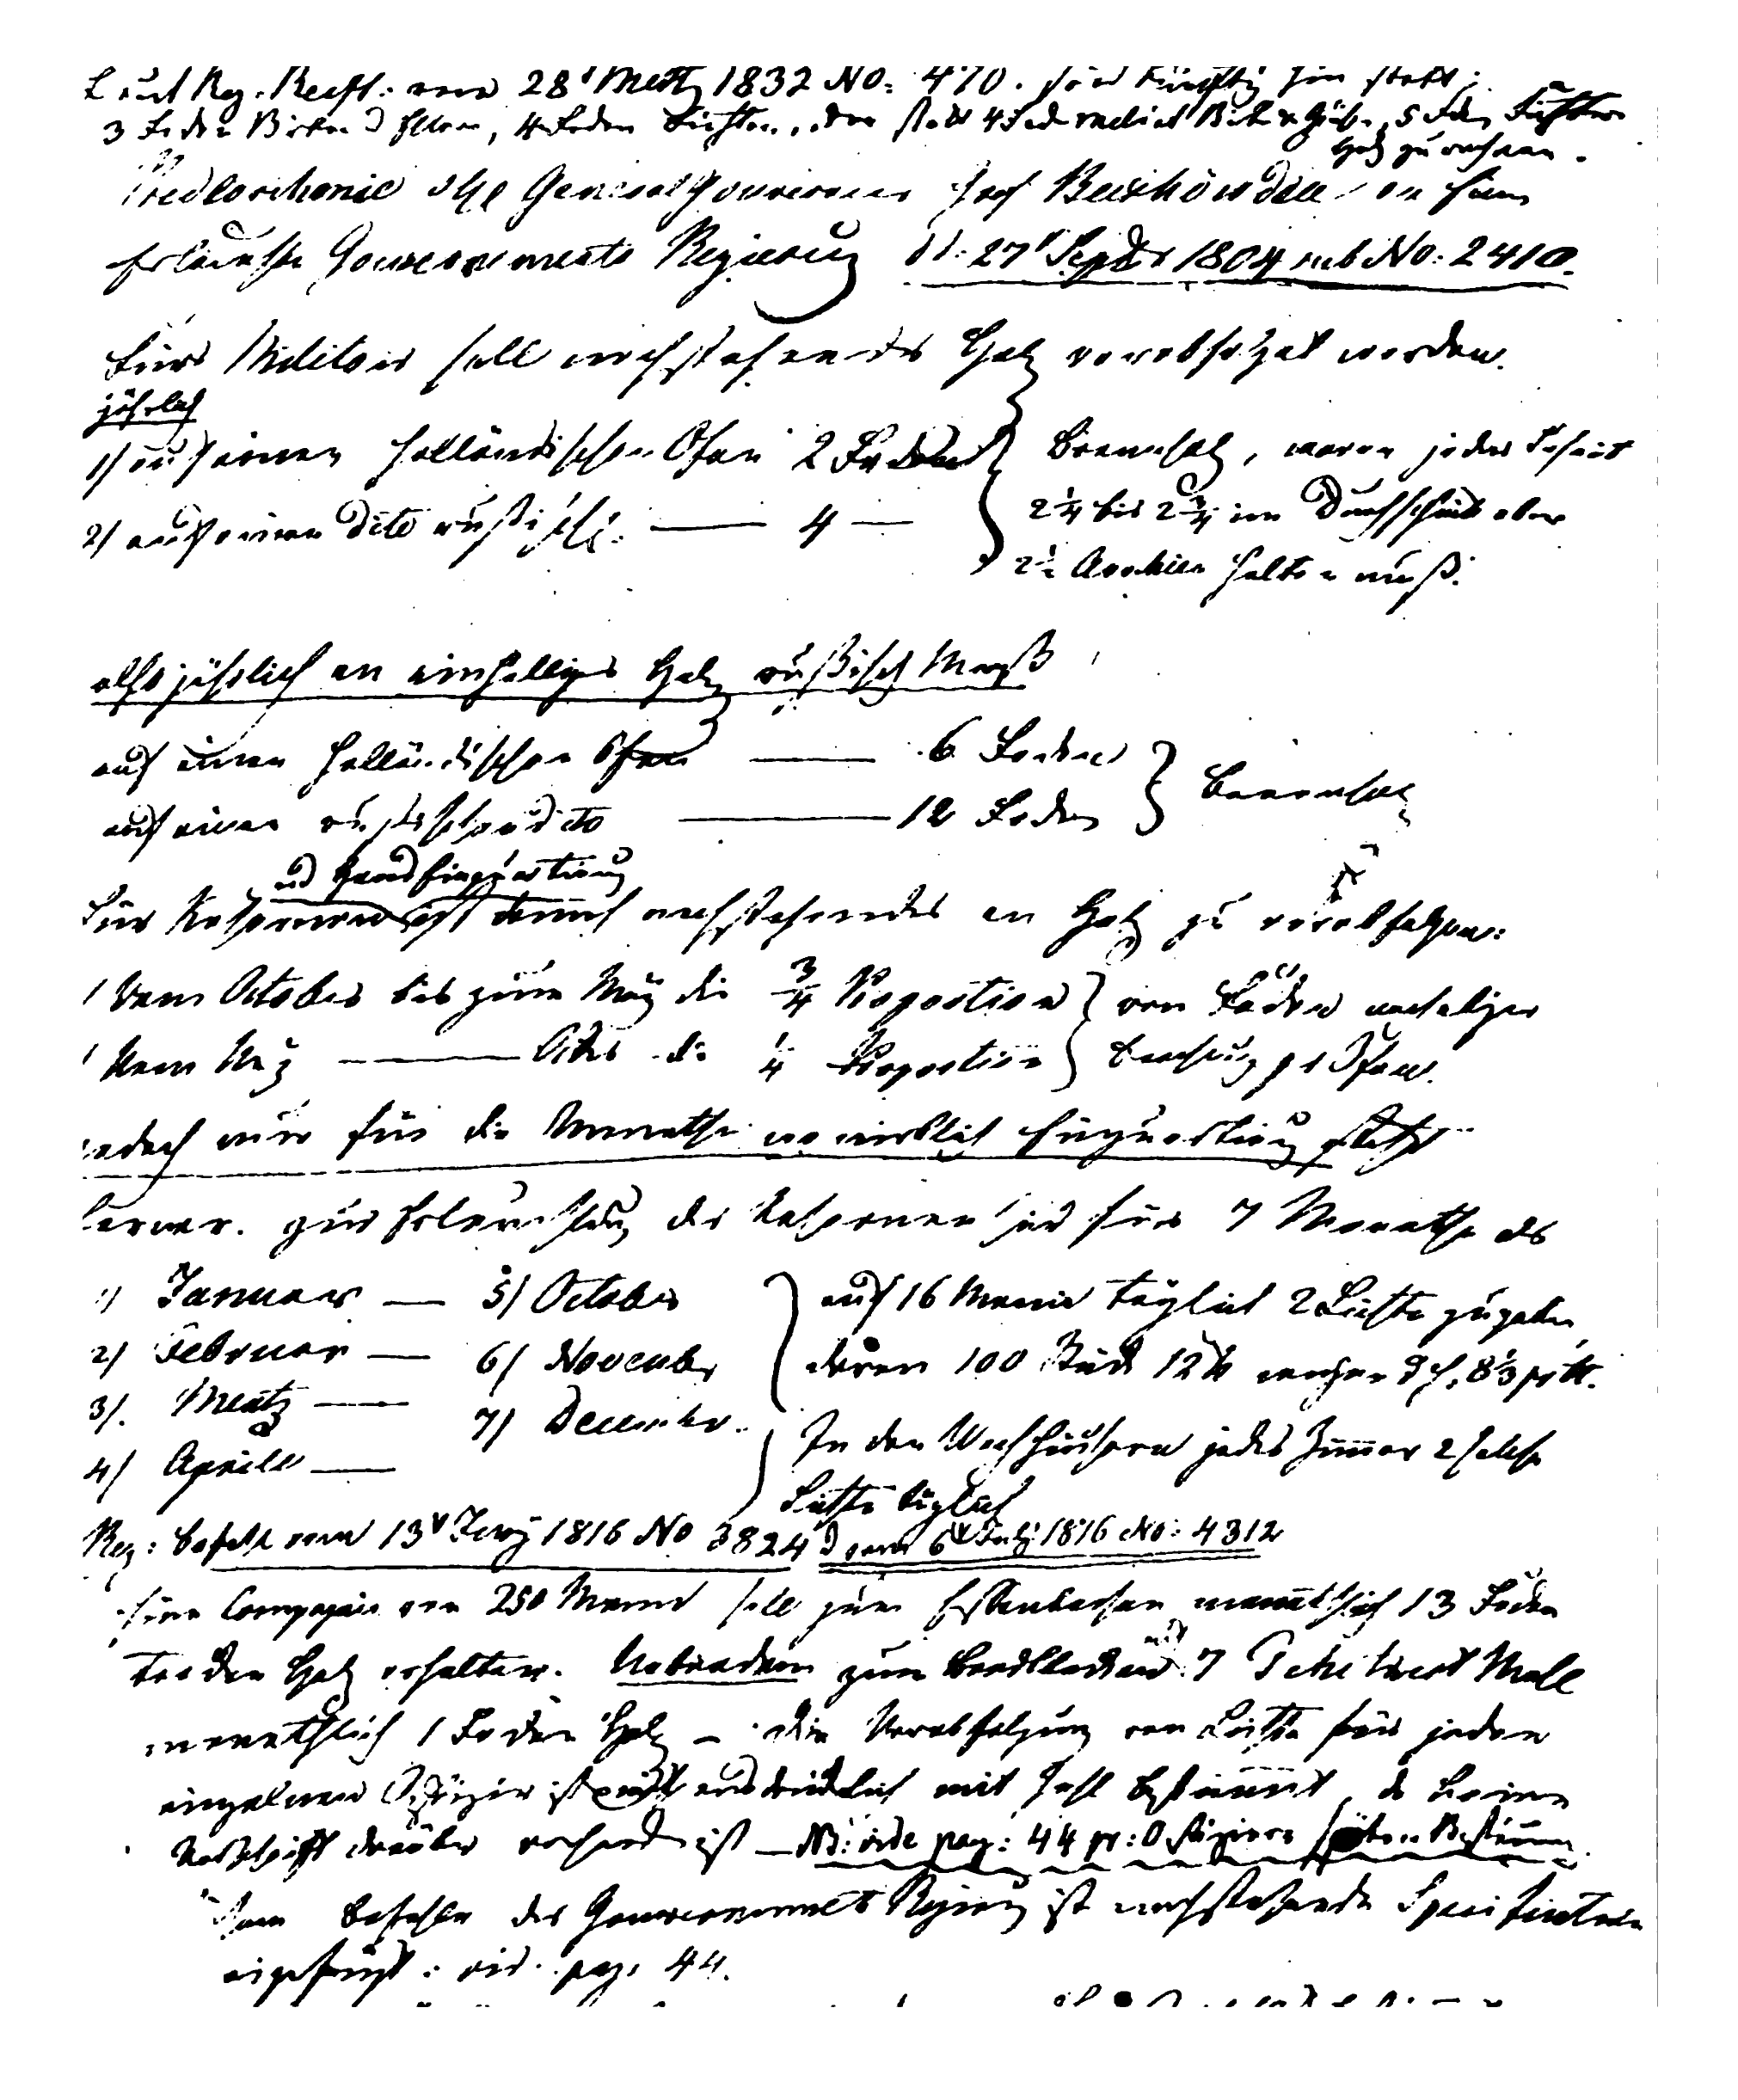 Laut Reg. Rescr: vom 28t Mertz 1832 No: 470. sind künftig hin statt
3 Faden Birken Ellern, 4 Faden Fichten, der statt 4 Fad 5 Fd Fichten
Holz zu rechnen.
Predloschenie des General Gouverneur Graf Buxhöwden an
Erlauchte Gouvernements Regierung dd: 27t Septbr 1804 sub No: 2410.
Fürs Militair soll nachstehendes Holz verabfolgt werden.
jährlich
1) auf einen holländischen Ofen 2 Faden } Brennholz, wovon jedes Scheit
2) auf einen dito rußisch: — 4 — 2 1/4 bis 2 3/4 im Durchschnitt aber
2 1/2 Arschien halten muß.
also jährlich an einhalliges Holz rußisch Maaß
auf einen holländischen Ofen — 6 Faden } Brennholz
auf einen russischen dito — 12 Faden
und Hauseinquartierung
Für Kasernen ist demnach nachstehendes an Holz zu verabfolgen:
Vom October bis zum May die 3/4 Proportion } von Fäden
Vom May — Octbr die 1/4 Proportion } pr Ofen.
jedoch nur für die Monathe wo wirklich Einquartierung statt
Ferner. zur Erleuchtung der Kasernen sind für 7 Monathe als
1) Januar — 5) October } auf 16 Mann täglich 2 Lichte zu geben,
2) Februar — 6) November deren 100 Stück 12 ℔ wiegen d.h. 8 1/3 pr ℔.
3) Mertz — 7) December. In den Wachhäusern jedes Zimmer 2 solche
4) Aprill — Lichte täglich
Reg: Befehl vom 13t Juny 1816 No 3824 & vom 6t July 1816 No: 4312
Eine Compagnie von 250 Mann soll zum Essenkochen monathlich 13 Faden
Holz erhalten. Außerdem zum Brodbacken 7 Tschetwert Mehl
monathlich 1 Faden Holz – die Verabfolgung von Lichte für jeden
einzelnen Offizier ist nicht ausdrücklich mit Zahl bestimmt, da keine
Vorschrift darüber vorhanden ist – NB: vide pag: 44 pr: Offiziere
Dem Befehle der Gouvernements Regierung ist nachstehende Specification
eigefügt: vid. pag. 44.